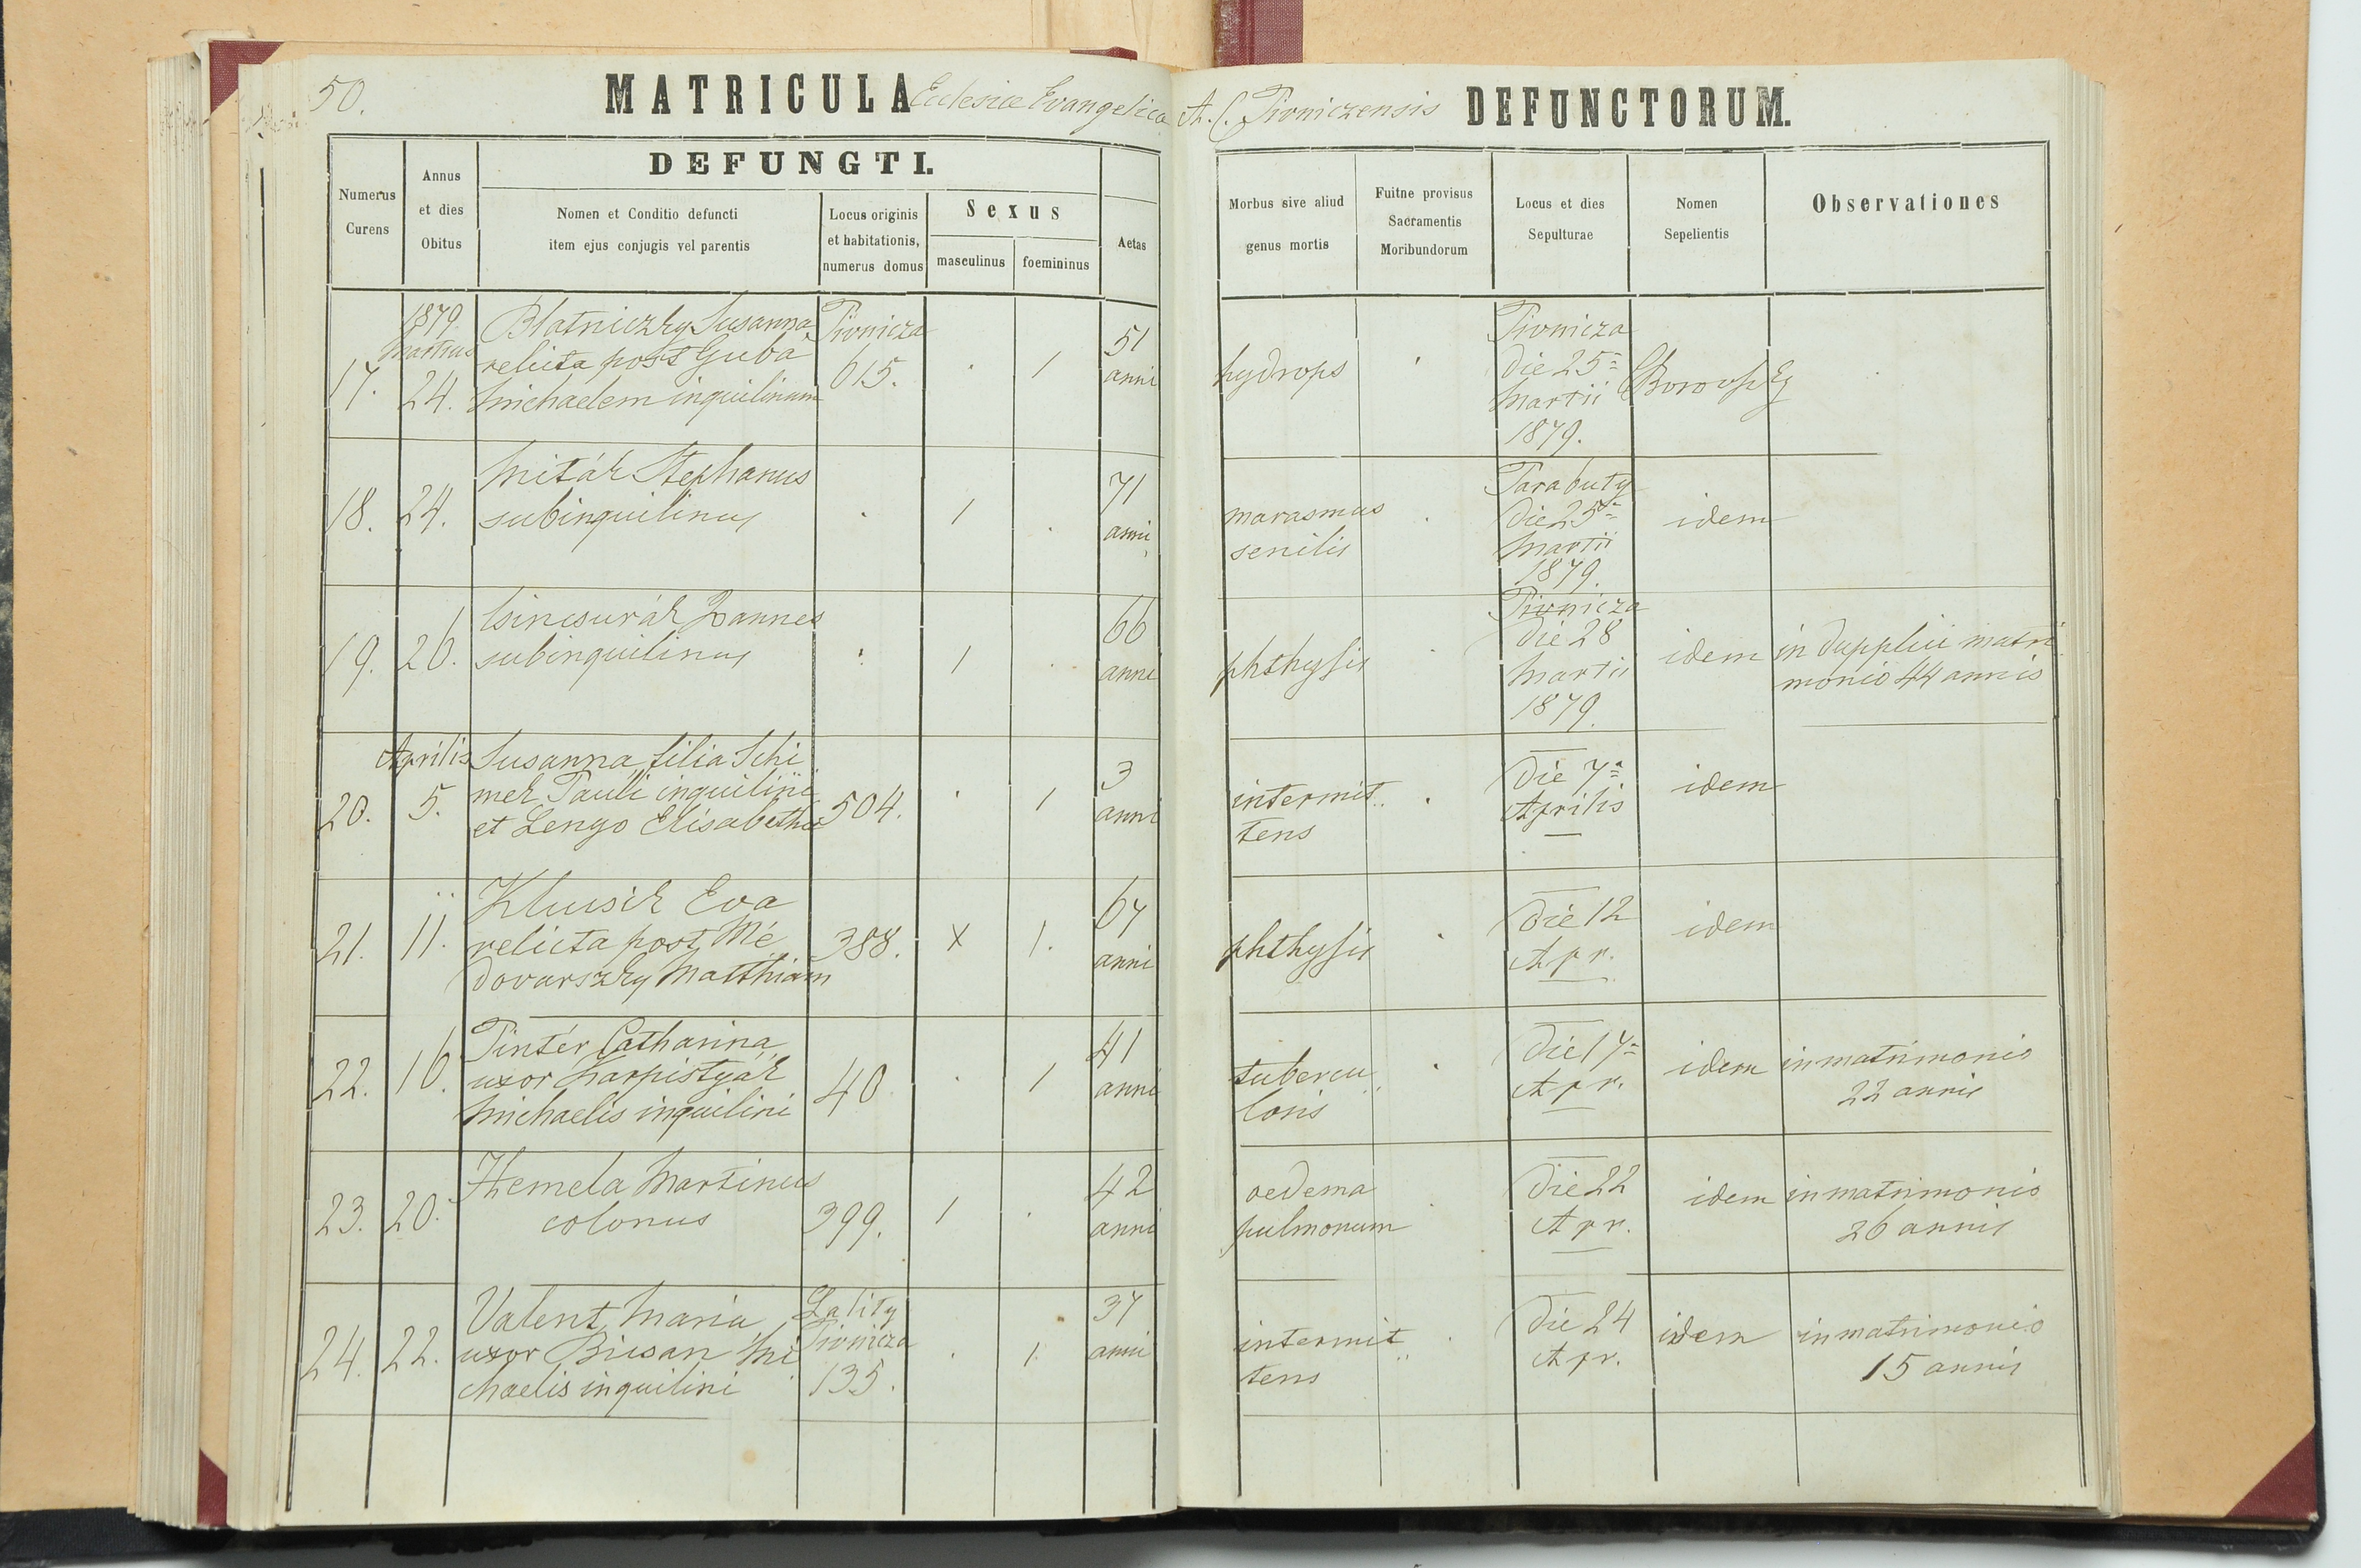 50.
MATRICULA Eclesiae Evangelicae A. C. Pivniczensis DEFUNCTORUM.
DEFUNGTI.
Numerus Curens
Annus et dies Obitus
Nomen et Conditio defuncti
item ejus conjugis vel parentis
Locus originis
et habitationis,
numerus domus
Sexus
masculinus
foemininus
Aetas
Morbus sive aliud
genus mortis
Fuitne provisus
Sacramentis
Moribundorum
Locus et dies
Sepulturae
Nomen
Sepelientis
Observationes
17.
1879
Martius
24.
Blatniczky Susanna
relicta post Guba
Michaelem inquilinum
Pivnicza
615.
. 1
51
anni
hydrops
Pivnicza
die 25
Martii
1879.
18.
24.
Miták Stephanus
subinquilinus
1 .
71
anni
marasmus
senilis
Parabuty
die 25
Martii
1879.
idem
19.
26.
Csincsurák Joannes
subinquilinus
1 .
66
anni
phthysis
Pivnicza
die 28
Martii
1879.
idem
in dupplici matri
monio 44 annis
20.
Aprilis
5.
Susanna filia Schi
mek Pauli inquilini
et Lengo Elisabethae
504.
. 1
3
anni
intermit
tens
die 7
Aprilis
idem
21.
11.
Klusik Eva
relicta post Me
dovarszky Matthiam
388.
x 1.
67
anni
phthysis
die 12
Apr.
idem
22.
16.
Pintér Catharina
uxor Karpistyák
Michaelis inquilini
40
. 1
41
anni
tubercu
losis
die 17
Apr.
idem
in matrimonio
22 annis
23.
20.
Hemela Martinus
colonus
399.
1 .
42
anni
oedema
pulmonum
die 22
Apr.
idem
in matrimonio
26 annis
24.
22.
Valent Maria
uxor Bucsan Mi
chaelis inquilini
Lality
Pivnicza
135.
. 1.
37
anni
intermit
tens
die 24
Apr.
idem
in matrimonio
15 annis